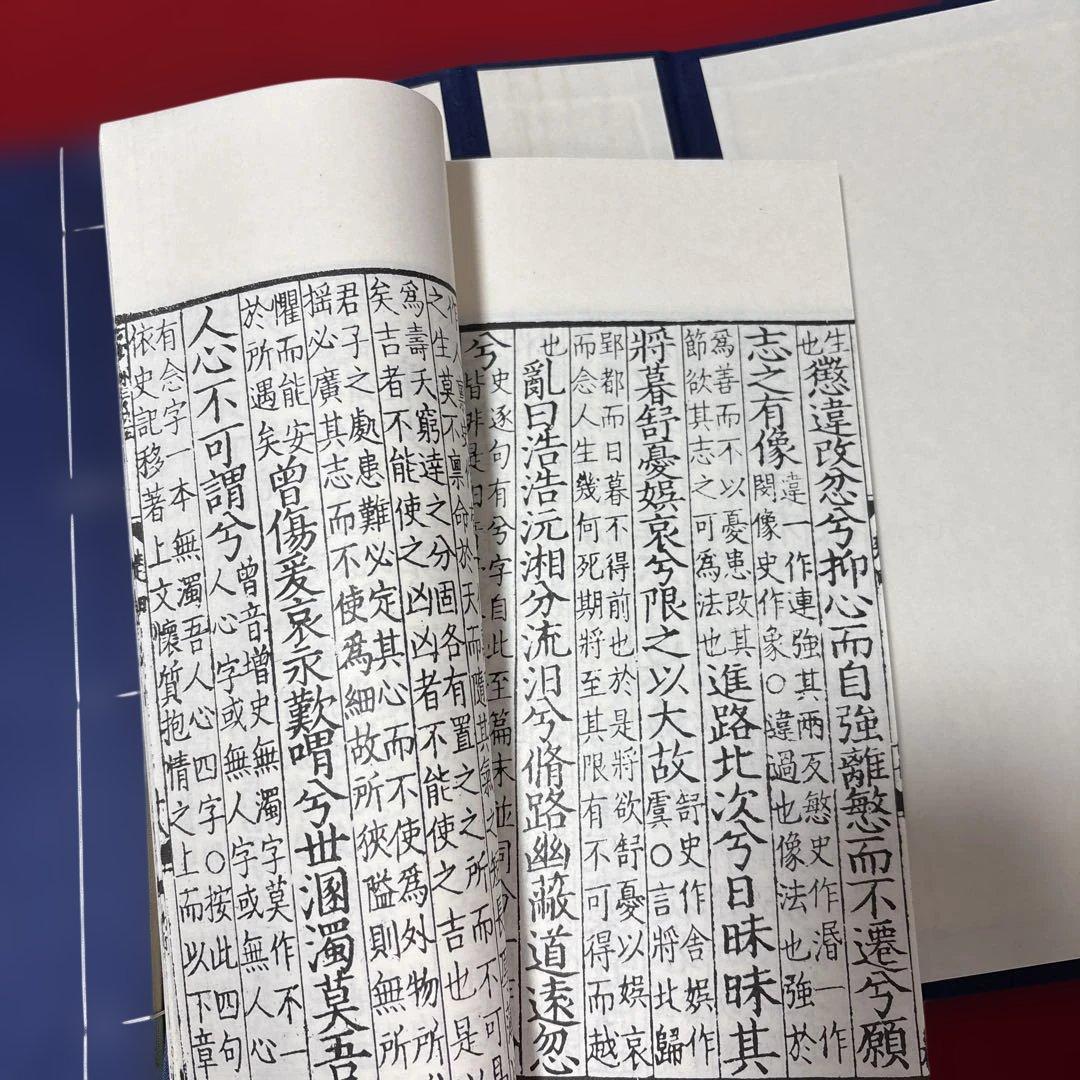 生
也
懲違改忿兮抑心而自強離慜而不遷兮願
志之有像
違一作連強其兩反慜史作湣一作
閔像史作象○違過也像法也強於
為善而不以憂患改其
節欲其志之可為法也
進路北次兮日昧昧其
將暮舒憂娛哀兮限之以大故
舒史作舍娛作
虞○言將北歸
郢都而日暮不得前也於是將欲舒憂以娛哀
而念人生幾何死期將至其限有不可得而越
也
亂曰浩浩沅湘分流汨兮脩路幽蔽道遠忽
兮
史逐句有兮字自此至篇末並同
皆非是
之生莫不稟命於天而隨其氣之
為壽夭窮達之分固各有置之之所而不可
矣吉者不能使之凶凶者不能使之吉也是
君子之處患難必定其心而不使為外物所
搖必廣其志而不使為細故所狹隘則無所
懼而能安
於所遇矣
曾傷爰哀永歎喟兮世溷濁莫吾
人心不可謂兮
曾音增史無濁字莫作不一
人心字或無人字或無人心
有念字一本無濁吾人心四字○按此四句
依史記移著上文懷質抱情之上而以下章